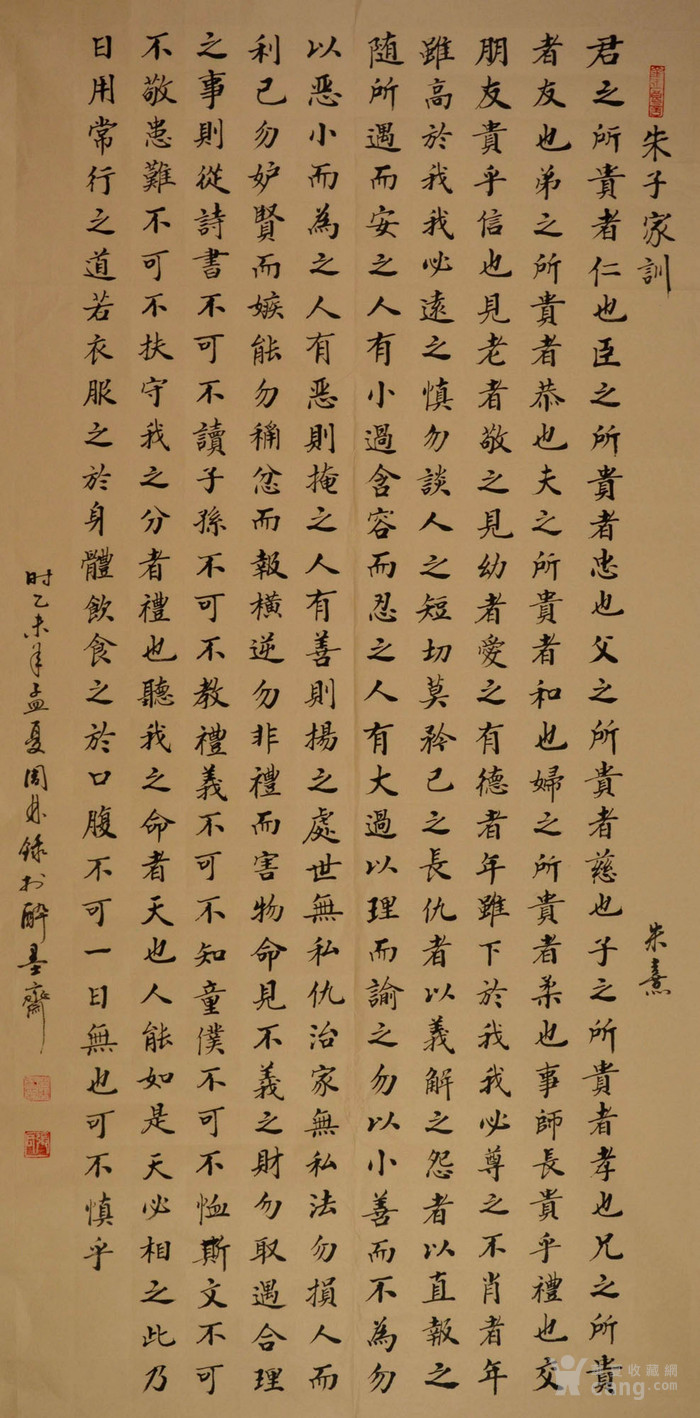 朱子家訓
朱熹
君之所貴者仁也臣之所貴者忠也父之所貴者慈也子之所貴者孝也兄之所貴
者友也弟之所貴者恭也夫之所貴者和也婦之所貴者柔也事師長貴乎禮也交
朋友貴乎信也見老者敬之見幼者愛之有德者年雖下於我我必尊之不肖者年
雖高於我我必遠之慎勿談人之短切莫矜己之長仇者以義解之怨者以直報之
随所遇而安之人有小過含容而忍之人有大過以理而諭之勿以小善而不為勿
以恶小而為之人有恶則掩之人有善則揚之處世無私仇治家無私法勿損人而
利己勿妒賢而嫉能勿稱忿而報橫逆勿非禮而害物命見不義之財勿取遇合理
之事則從詩書不可不讀子孫不可不教禮義不可不知童僕不可不恤斯文不可
不敬患難不可不扶守我之分者禮也聽我之命者天也人能如是天必相之此乃
日用常行之道若衣服之於身體飲食之於口腹不可一日無也可不慎乎
时乙未年孟夏周 錄於醉墨齋
cang.com